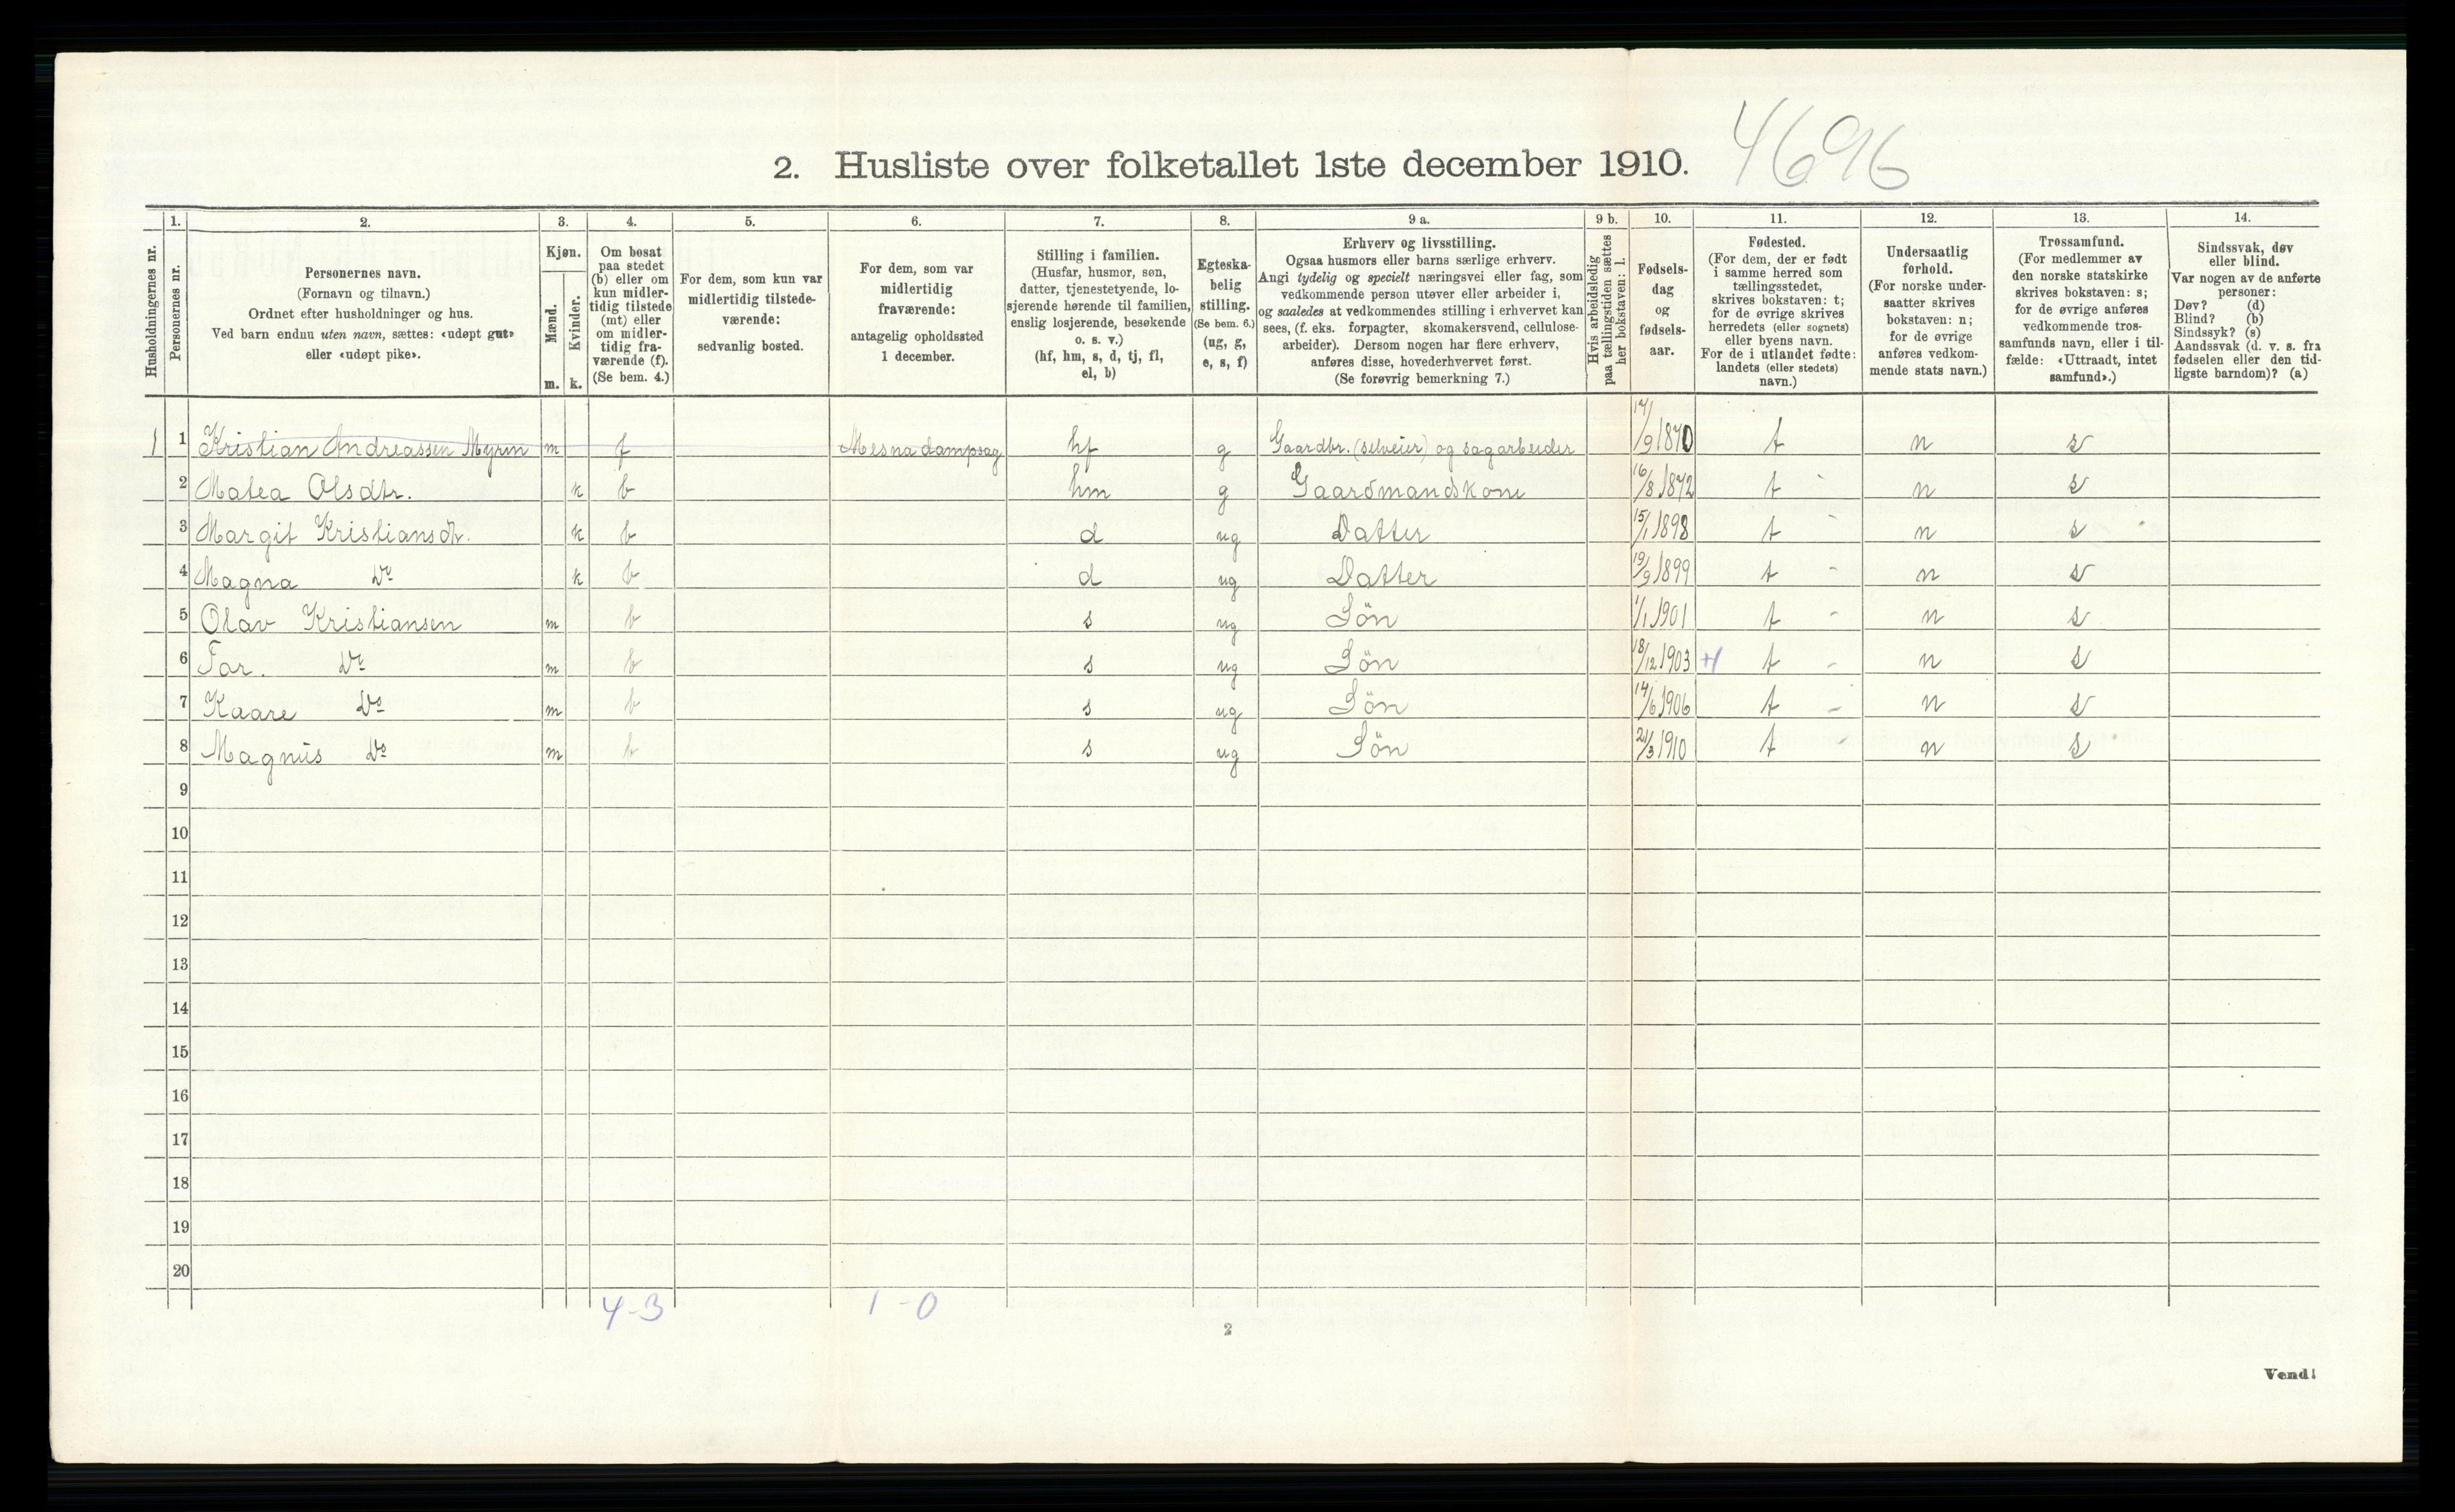 4696
2. Husliste over folketallet 1ste december 1910.
Husholdningernes nr.
1. Personernes nr.
2. Personernes navn.
(Fornavn og tilnavn.)
Ordnet efter husholdninger og hus.
Ved barn endnu uten navn, sættes: «udøpt gut»
eller «udøpt pike».
3. Kjøn.
Mænd. m.
Kvinder. k.
4. Om bosat
paa stedet
(b) eller om
kun midler-
tidig tilstede
(mt) eller
om midler-
tidig fra-
værende (f).
(Se bem. 4.)
5. For dem, som kun var
midlertidig tilstede-
værende:
sedvanlig bosted.
6. For dem, som var
midlertidig
fraværende:
antagelig opholdssted
1 december.
7. Stilling i familien.
(Husfar, husmor, søn,
datter, tjenestetyende, lo-
sjerende hørende til familien,
enslig losjerende, besøkende
o. s. v.)
(hf, hm, s, d, tj, fl,
el, b)
8. Egteska-
belig
stilling.
(Se bem. 6.)
(ug, g,
e, s, f)
9 a. Erhverv og livsstilling.
Ogsaa husmors eller barns særlige erhverv.
Angi tydelig og specielt næringsvei eller fag, som
vedkommende person utøver eller arbeider i,
og saaledes at vedkommendes stilling i erhvervet kan
sees, (f. eks. forpagter, skomakersvend, cellulose-
arbeider). Dersom nogen har flere erhverv,
anføres disse, hovederhvervet først.
(Se forøvrig bemerkning 7.)
9 b. Hvis arbeidsledig
paa tællingstiden sættes
her bokstaven: l.
10. Fødsels-
dag
og
fødsels-
aar.
11. Fødested.
(For dem, der er født
i samme herred som
tællingsstedet,
skrives bokstaven: t;
for de øvrige skrives
herredets (eller sognets)
eller byens navn.
For de i utlandet fødte:
landets (eller stedets)
navn.)
12. Undersaatlig
forhold.
(For norske under-
saatter skrives
bokstaven: n;
for de øvrige
anføres vedkom-
mende stats navn.)
13. Trossamfund.
(For medlemmer av
den norske statskirke
skrives bokstaven: s;
for de øvrige anføres
vedkommende tros-
samfunds navn, eller i til-
fælde: «Uttraadt, intet
samfund».)
14. Sindssvak, døv
eller blind.
Var nogen av de anførte
personer:
Døv? (d)
Blind? (b)
Sindssyk? (s)
Aandssvak (d. v. s. fra
fødselen eller den tid-
ligste barndom)? (a)
1 1 Kristian Andreassen Myrin m f Mesna dampsag hf g Gaardbr. (selveier) og sagarbeider 14/9 1870 t n s
2 Matea Olsdtr. k b hm g Gaardmandskone 16/8 1872 t - n s
3 Margit Kristiansdtr. k b d ug Datter 15/1 1898 t - n s
4 Magna Do k b d ug Datter 19/9 1899 t - n s
5 Olav Kristiansen m b s ug Søn 1/1 1901 t - n s
6 Tor. Do m b s ug Søn 18/12 1903 +1 t - n s
7 Kaare Do m b s ug Søn 14/6 1906 t - n s
8 Magnus Do m b s ug Søn 21/3 1910 t - n s
9
10
11
12
13
14
15
16
17
18
19
20
4-3 1-0
2
Vend!